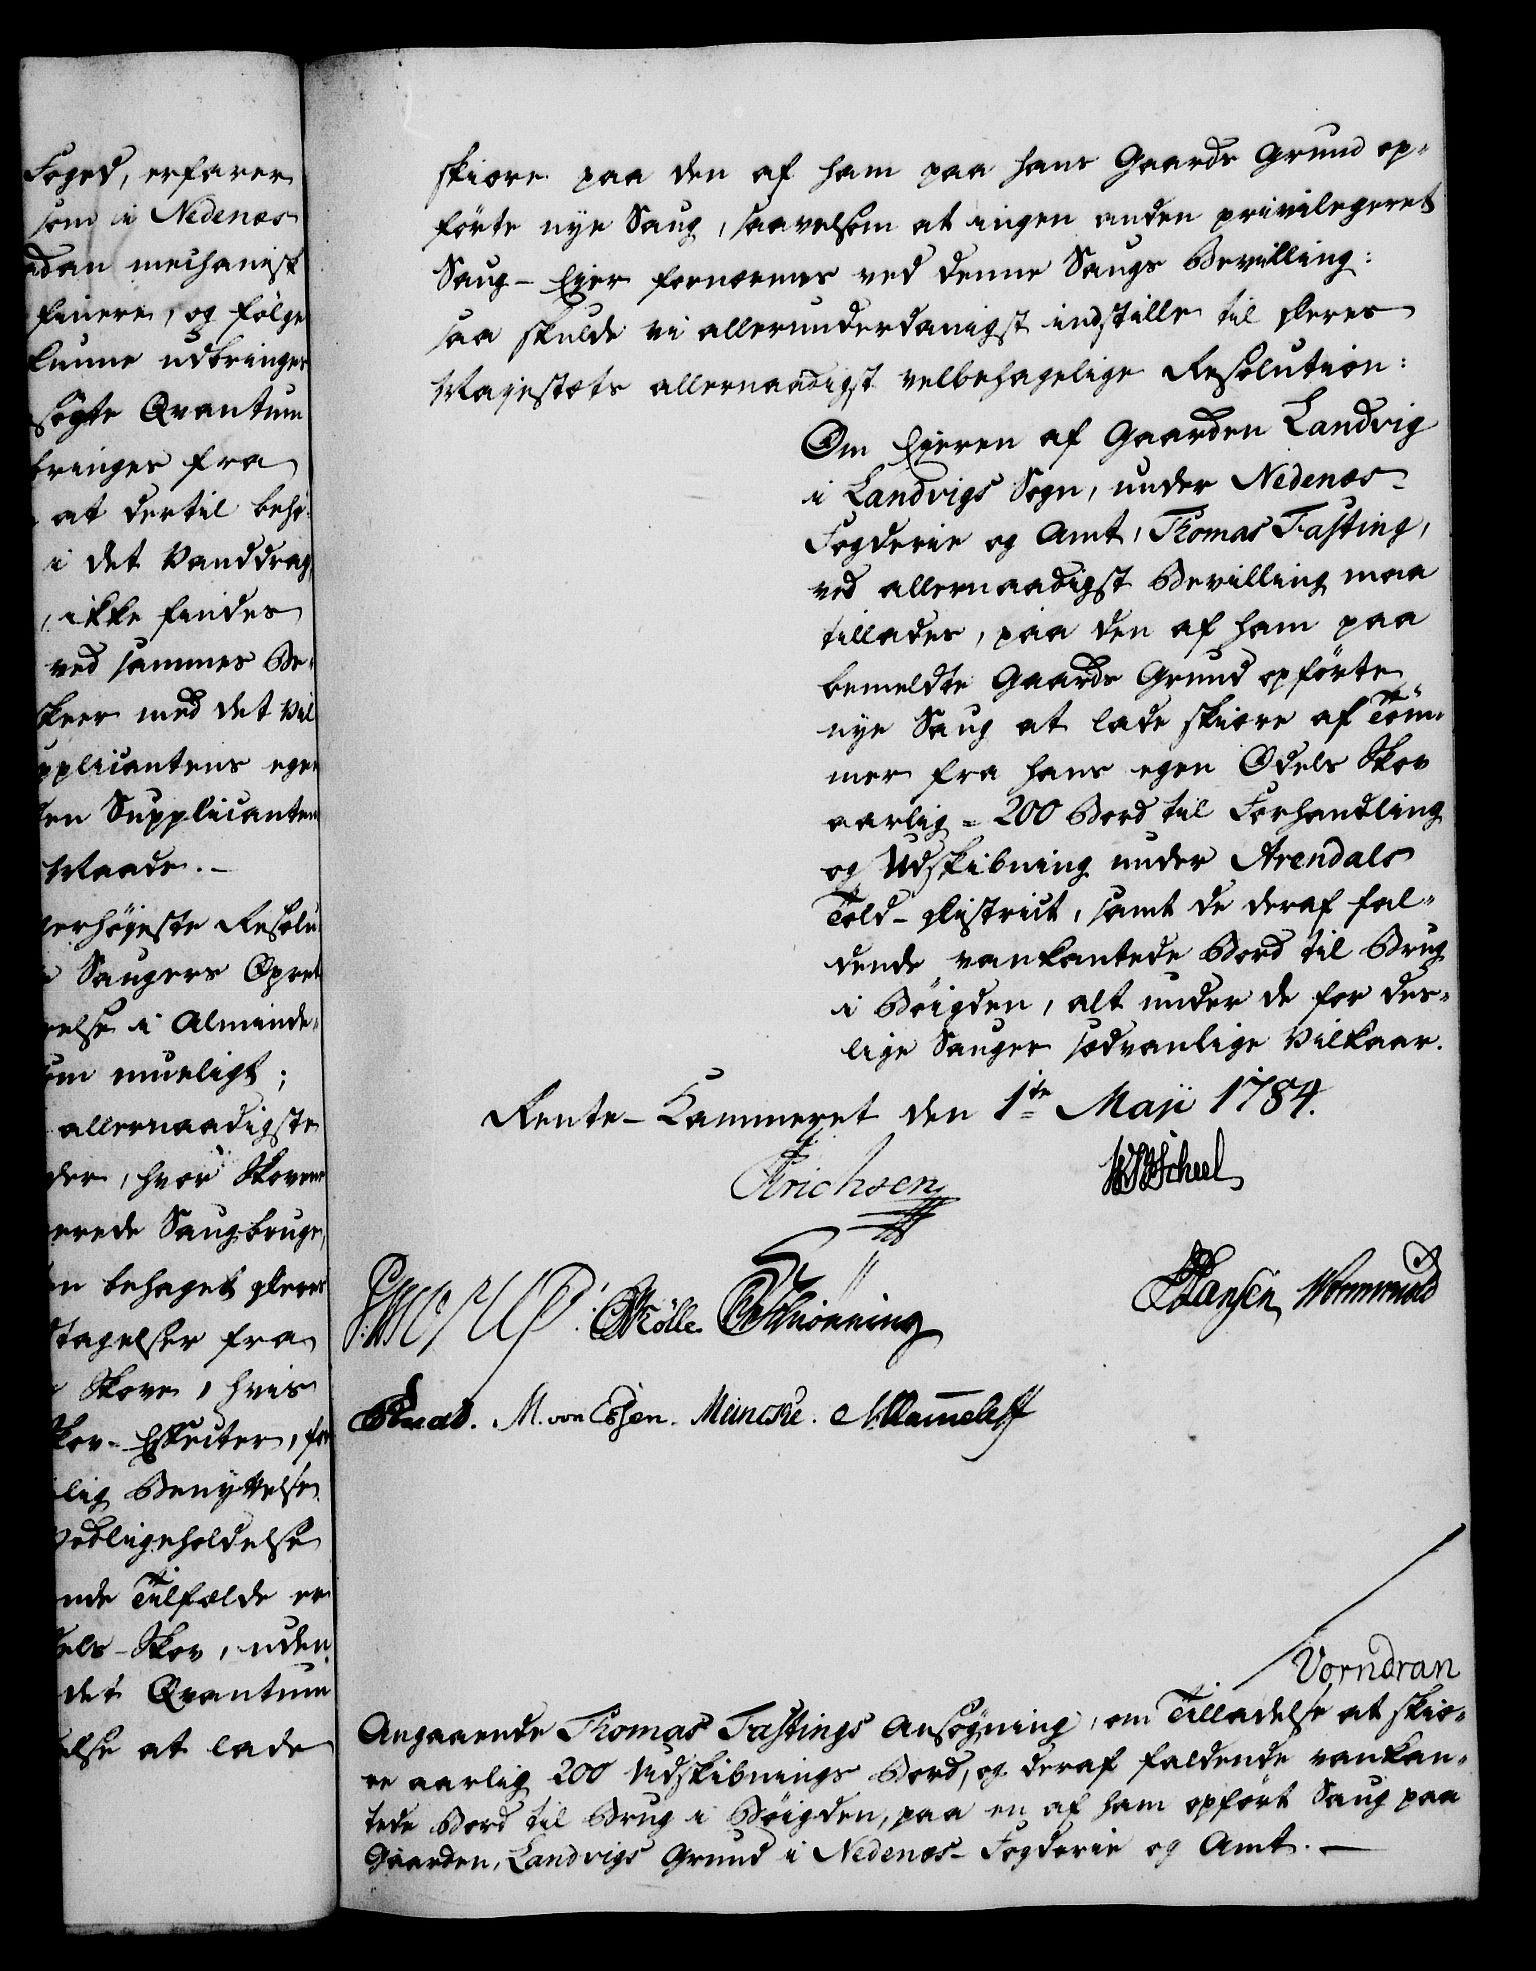 Foged, erfarer
som i Nedenæs
adan mechanisk
finere, og følge
kunne udbringes
søgte Qvantum
bringes fra
at dertil behø-
i det Vanddrag,
, ikke findes
ved sammes Be-
skeer med det Vil
upplicantens egen
den Supplicanten
Maade. -
lerhøyeste Resolu
Saugers Opret
else i Alminde-
om mueligt;
allernaadigste
der, hvor Skovene
erede Saugbruge,
en behaget Deres
tagelser fra
Skove, hvis
kov-Effecter, for
lig Benyttelse
Vedligeholdelse
nde Tilfælde er
dels-Skov, uden
det Qvantum
else at lade
skiære paa den af ham paa hans Gaards Grund op-
førte nye Saug, saavelsom at ingen anden privilegeret
Saug-Eier fornærmes ved denne Saugs Bevilling:
saa skulde vi allerunderdanigst indstille til Deres
Majestæts allernaadigst velbehagelige Resolution:
Om Eieren af Gaarden Landvig
i Landvigs Sogn, under Nedenæs-
Fogderie og Amt, Thomas Fasting,
ved allernaadigst Bevilling maa
tillades, paa den af ham paa
bemeldte Gaards Grund opførte
nye Saug at lade skiære af Töm-
mer fra hans egen Odels Skov
aarlig = 200 Bord til Forhandling
og Udskibning under Arendals
Told-District, samt de deraf fal-
dende vankantede Bord til Brug
i Bøigden, alt under de for des-
lige Sauger sædvanlige Vilkaar.
Rente-Kammeret den 1te Maji 1784.
Erichsen
Scheel
Mølle. Schiønning
Hansen Wormwold
M. von Essen. Meincke.
Vorndran
Angaaende Thomas Fastings Ansøgning, om Tilladelse at skiæ-
re aarlig 200 Udskibnings Bord, og deraf faldende vankan-
tede Bord til Brug i Bøigden, paa en af ham opført Saug paa
Gaarden, Landvigs Grund i Nedenæs-Fogderie og Amt. -